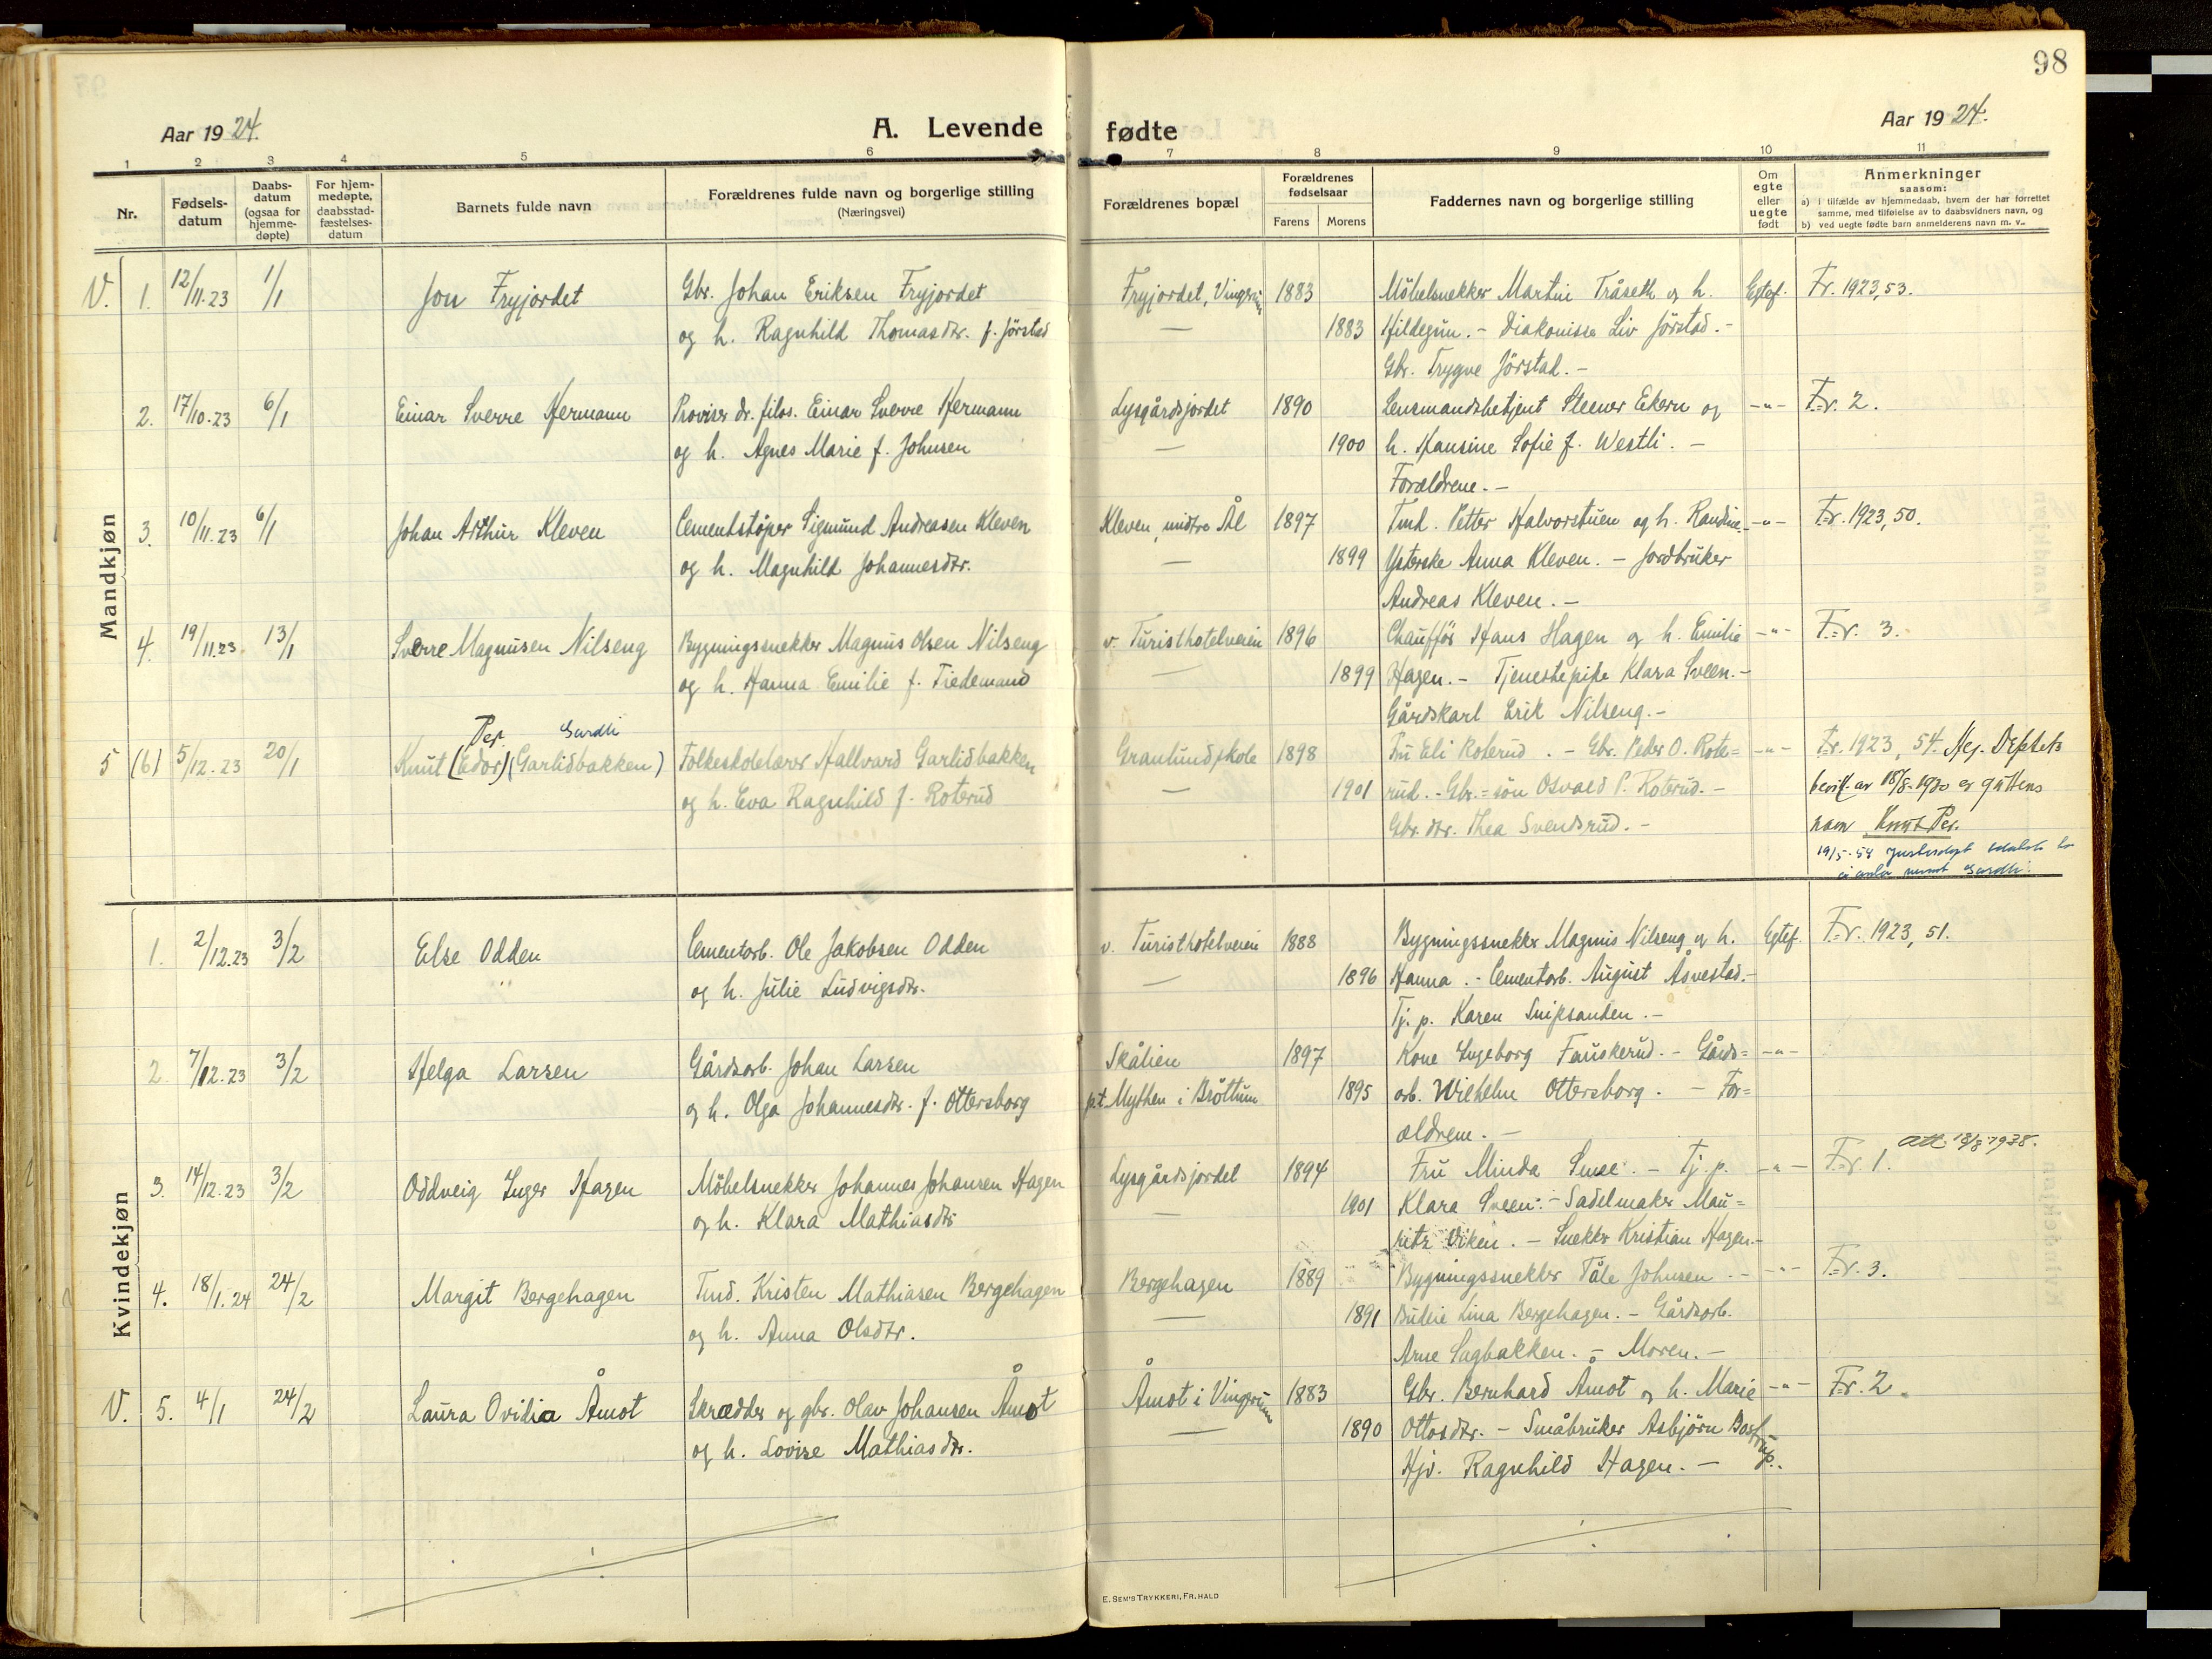 98
Aar 1924.
A. Levende fødte
Aar 1924.
1 2 3 4 5 6 7 8 9 10 11
Nr.
Fødsels-
datum
Daabs-
datum
(ogsaa for
hjemme-
døpte)
For hjem-
medøpte,
daabsstad-
fæstelses-
datum
Barnets fulde navn
Forældrenes fulde navn og borgerlige stilling
(Næringsvei)
Forældrenes bopæl
Forældrenes
fødselsaar
Farens Morens
Faddernes navn og borgerlige stilling
Om
egte
eller
uegte
født
Anmerkninger
saasom:
a) i tilfælde av hjemmedaab, hvem der har forrettet
samme, med tilføielse av to daabsvidners navn, og
b) ved uegte fødte barn anmelderens navn m. v.
Mandkjøn
V. 1. 12/11.23 1/1 Jon Fryjordet Gbr. Johan Eriksen Fryjordet Fryjordet, Vingrom 1883 Möbelsnekker Martin Tråseth og h. Egtef. Fr. 1923, 53.
og h. Ragnhild Thomasdtr. f. Jörstad — 1883 Hildegun. - Diakonisse Liv Jörstad. -
Gbr. Trygve Jörstad. -
2. 17/10.23 6/1 Einar Sverre Hermann Provisor dr. filos. Einar Sverre Hermann Lysgårdsjordet 1890 Lensmandsbetjent Steener Ekern og -"- Fr. 2.
og h. Agnes Marie f. Johnsen — 1900 h. Hansine Sofie f. Westli. -
Forældrene. -
3. 10/11.23 6/1 Johan Arthur Kleven Cementstöper Sigmund Andreasen Kleven Kleven, midtre Ål 1897 Tmd. Petter Halvorstuen og h. Randine. -"- Fr. 1923, 50.
og h. Magnhild Johannesdtr. — 1899 Ysterske Anna Kleven. - Jordbruker
Andreas Kleven. -
4. 19/11.23 13/1 Sverre Magnusen Nilseng Bygningssnekker Magnus Olsen Nilseng v. Turisthotelveien 1896 Chauffør Hans Hagen og h. Emilie -"- Fr. 3.
og h. Hanna Emilie f. Tiedemand — 1899 Hagen. - Tjenestepike Klara Sveen. -
Gårdskarl Erik Nilseng. -
Per Gardli
5 (6) 5/12.23 20/1 Knut (Edor) (Garlidbakken) Folkeskolelærer Hallvard Garlidbakken Granlund skole 1898 Fru Eli Roterud. - Gbr. Peder O. Rote= -"- Fr. 1923, 54. Flg. Deptets
og h. Eva Ragnhild f. Roterud — 1901 rud. - Gbr.=sön Osvald P. Roterud. - bevill. av 18/8-1930 er guttens
Gbr. dtr. Thea Svendsrud. - navn Knut Per.
19/5-54
Gardli.
Kvindekjøn
1. 2/12.23 3/2 Else Odden Cementarb. Ole Jakobsen Odden v. Turisthotelveien 1888 Bygningssnekker Magnus Nilseng og h. Egtef. Fr. 1923, 51.
og h. Julie Ludvigsdtr. — 1896 Hanna. - Cementarb. August Åsvestad. -
Tj. p. Karen Snipsanden. -
2. 7/12.23 3/2 Helga Larsen Gårdsarb. Johan Larsen Skålien 1897 Kone Ingeborg Fauskerud. - Gårds= -"-
og h. Olga Johannesdtr. f. Ottersborg p.t. Mythen i Bröttum 1895 arb. Wilhelm Ottersborg. - For=
ældrene. -
3. 14/12.23 3/2 Oddveig Inger Hagen Möbelsnekker Johannes Johansen Hagen Lysgårdsjordet 1894 Fru Minda Smee. - Tj. p. -"- Fr. 1. Att. 18/8 1938.
og h. Klara Mathiasdtr — 1901 Klara Sveen. - Sadelmaker Mau=
ritz Viken. - Snekker Kristian Hagen. -
4. 18/1.24 24/2 Margit Bergehagen Tmd. Kristen Mathiasen Bergehagen Bergehagen 1889 Bygningssnekker Tåle Johnsen. - -"- Fr. 3.
og h. Anna Olsdtr. — 1891 Budeie Lina Bergehagen. - Gårdsarb.
Arne Sagbakken. - Moren. -
V. 5. 4/1 24/2 Laura Ovidia Åmot Skrædder og gbr. Olav Johansen Åmot Åmot i Vingrom 1883 Gbr. Bernhard Åmot og h. Marie -"- Fr. 2.
og h. Lovise Mathiasdtr. — 1890 Ottosdtr. - Småbruker Asbjörn
Hjv. Ragnhild Hagen. -
E. SEM'S TRYKKERI, FR. HALD